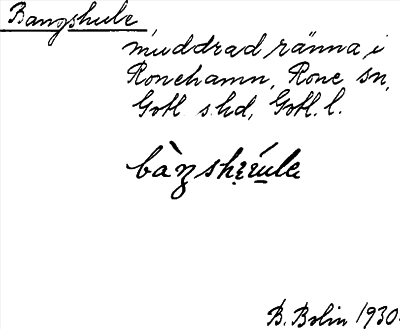 Bangshule
muddrad ränna i
Ronehamn, Rone sn,
Gotl s. hd, Gotl. l.
B. Bolin 1930.